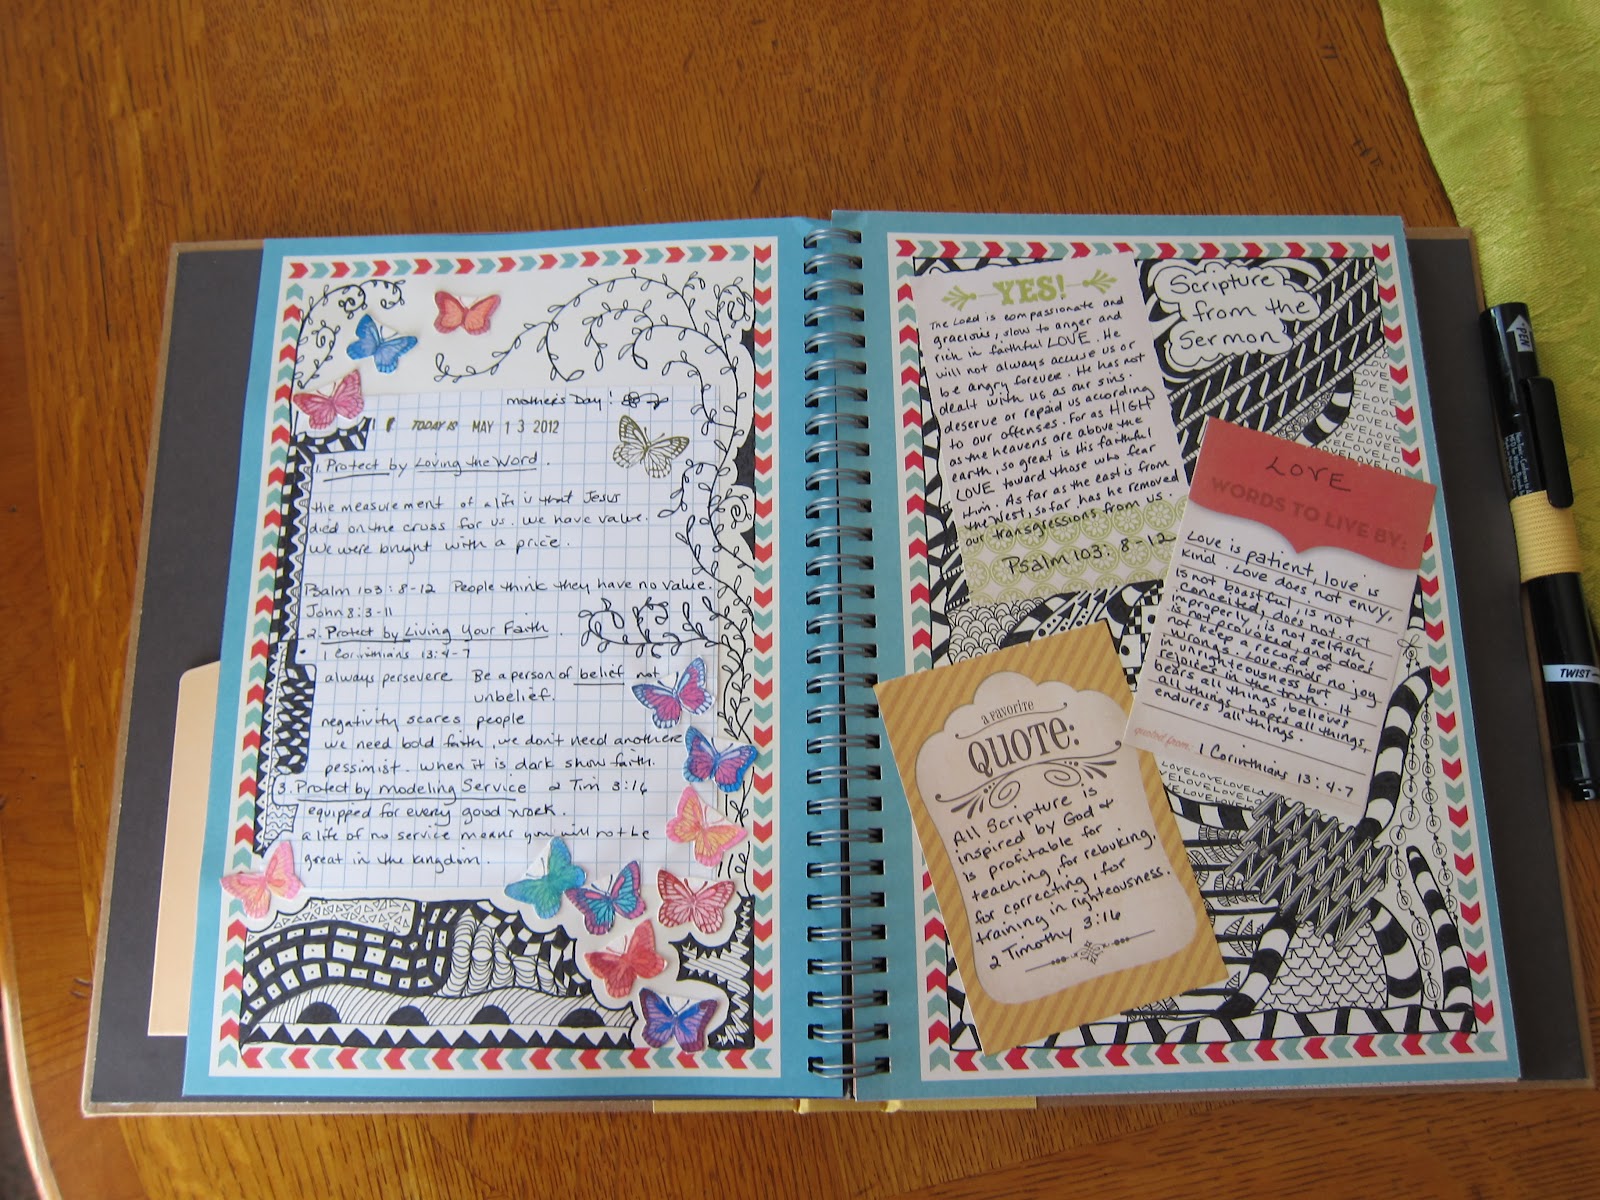 mother's Day!
TODAY IS MAY 13 2012
1. Protect by Loving the Word.
the measurement of a life is that Jesus
died on the cross for us. We have value.
We were bought with a price.
Psalm 103: 8-12 People think they have no value.
John 8:3-11
2. Protect by Living Your Faith.
1 Corinthians 13:4-7
always persevere Be a person of belief not
unbelief.
negativity scares people
we need bold faith, we don't need another
pessimist. when it is dark show faith.
3. Protect by modeling Service 2 Tim 3:16
equipped for every good work.
a life of no service means you will not be
great in the kingdom.
YES!
The Lord is compassionate and
gracious, slow to anger and
rich in faithful LOVE. He
will not always accuse us or
be angry forever. He has not
dealt with us as our sins
deserve or repaid us according
to our offenses. For as HIGH
as the heavens are above the
earth, so great is His faithful
LOVE toward those who fear
Him. As far as the east is from
the West, so far has he removed
our transgressions from us.
Psalm 103: 8-12
Scripture
from the
Sermon
LOVE
WORDS TO LIVE BY:
Love is patient, love is
kind. Love does not envy,
is not boastful, is not
conceited, does not act
improperly, is not selfish,
is not provoked, and does
not keep a record of
wrongs. Love finds no joy
in unrighteousness but
rejoices in the truth. It
bears all things, believes
all things, hopes all things,
endures all things.
quoted from: 1 Corinthians 13:4-7
a FAVORITE
QUOTE:
All Scripture is
inspired by God &
is profitable for
teaching, for rebuking,
for correcting, for
training in righteousness.
2 Timothy 3:16
LOVELOVELOVELOVE
LOVELOVELOVE
PEN
TWIST